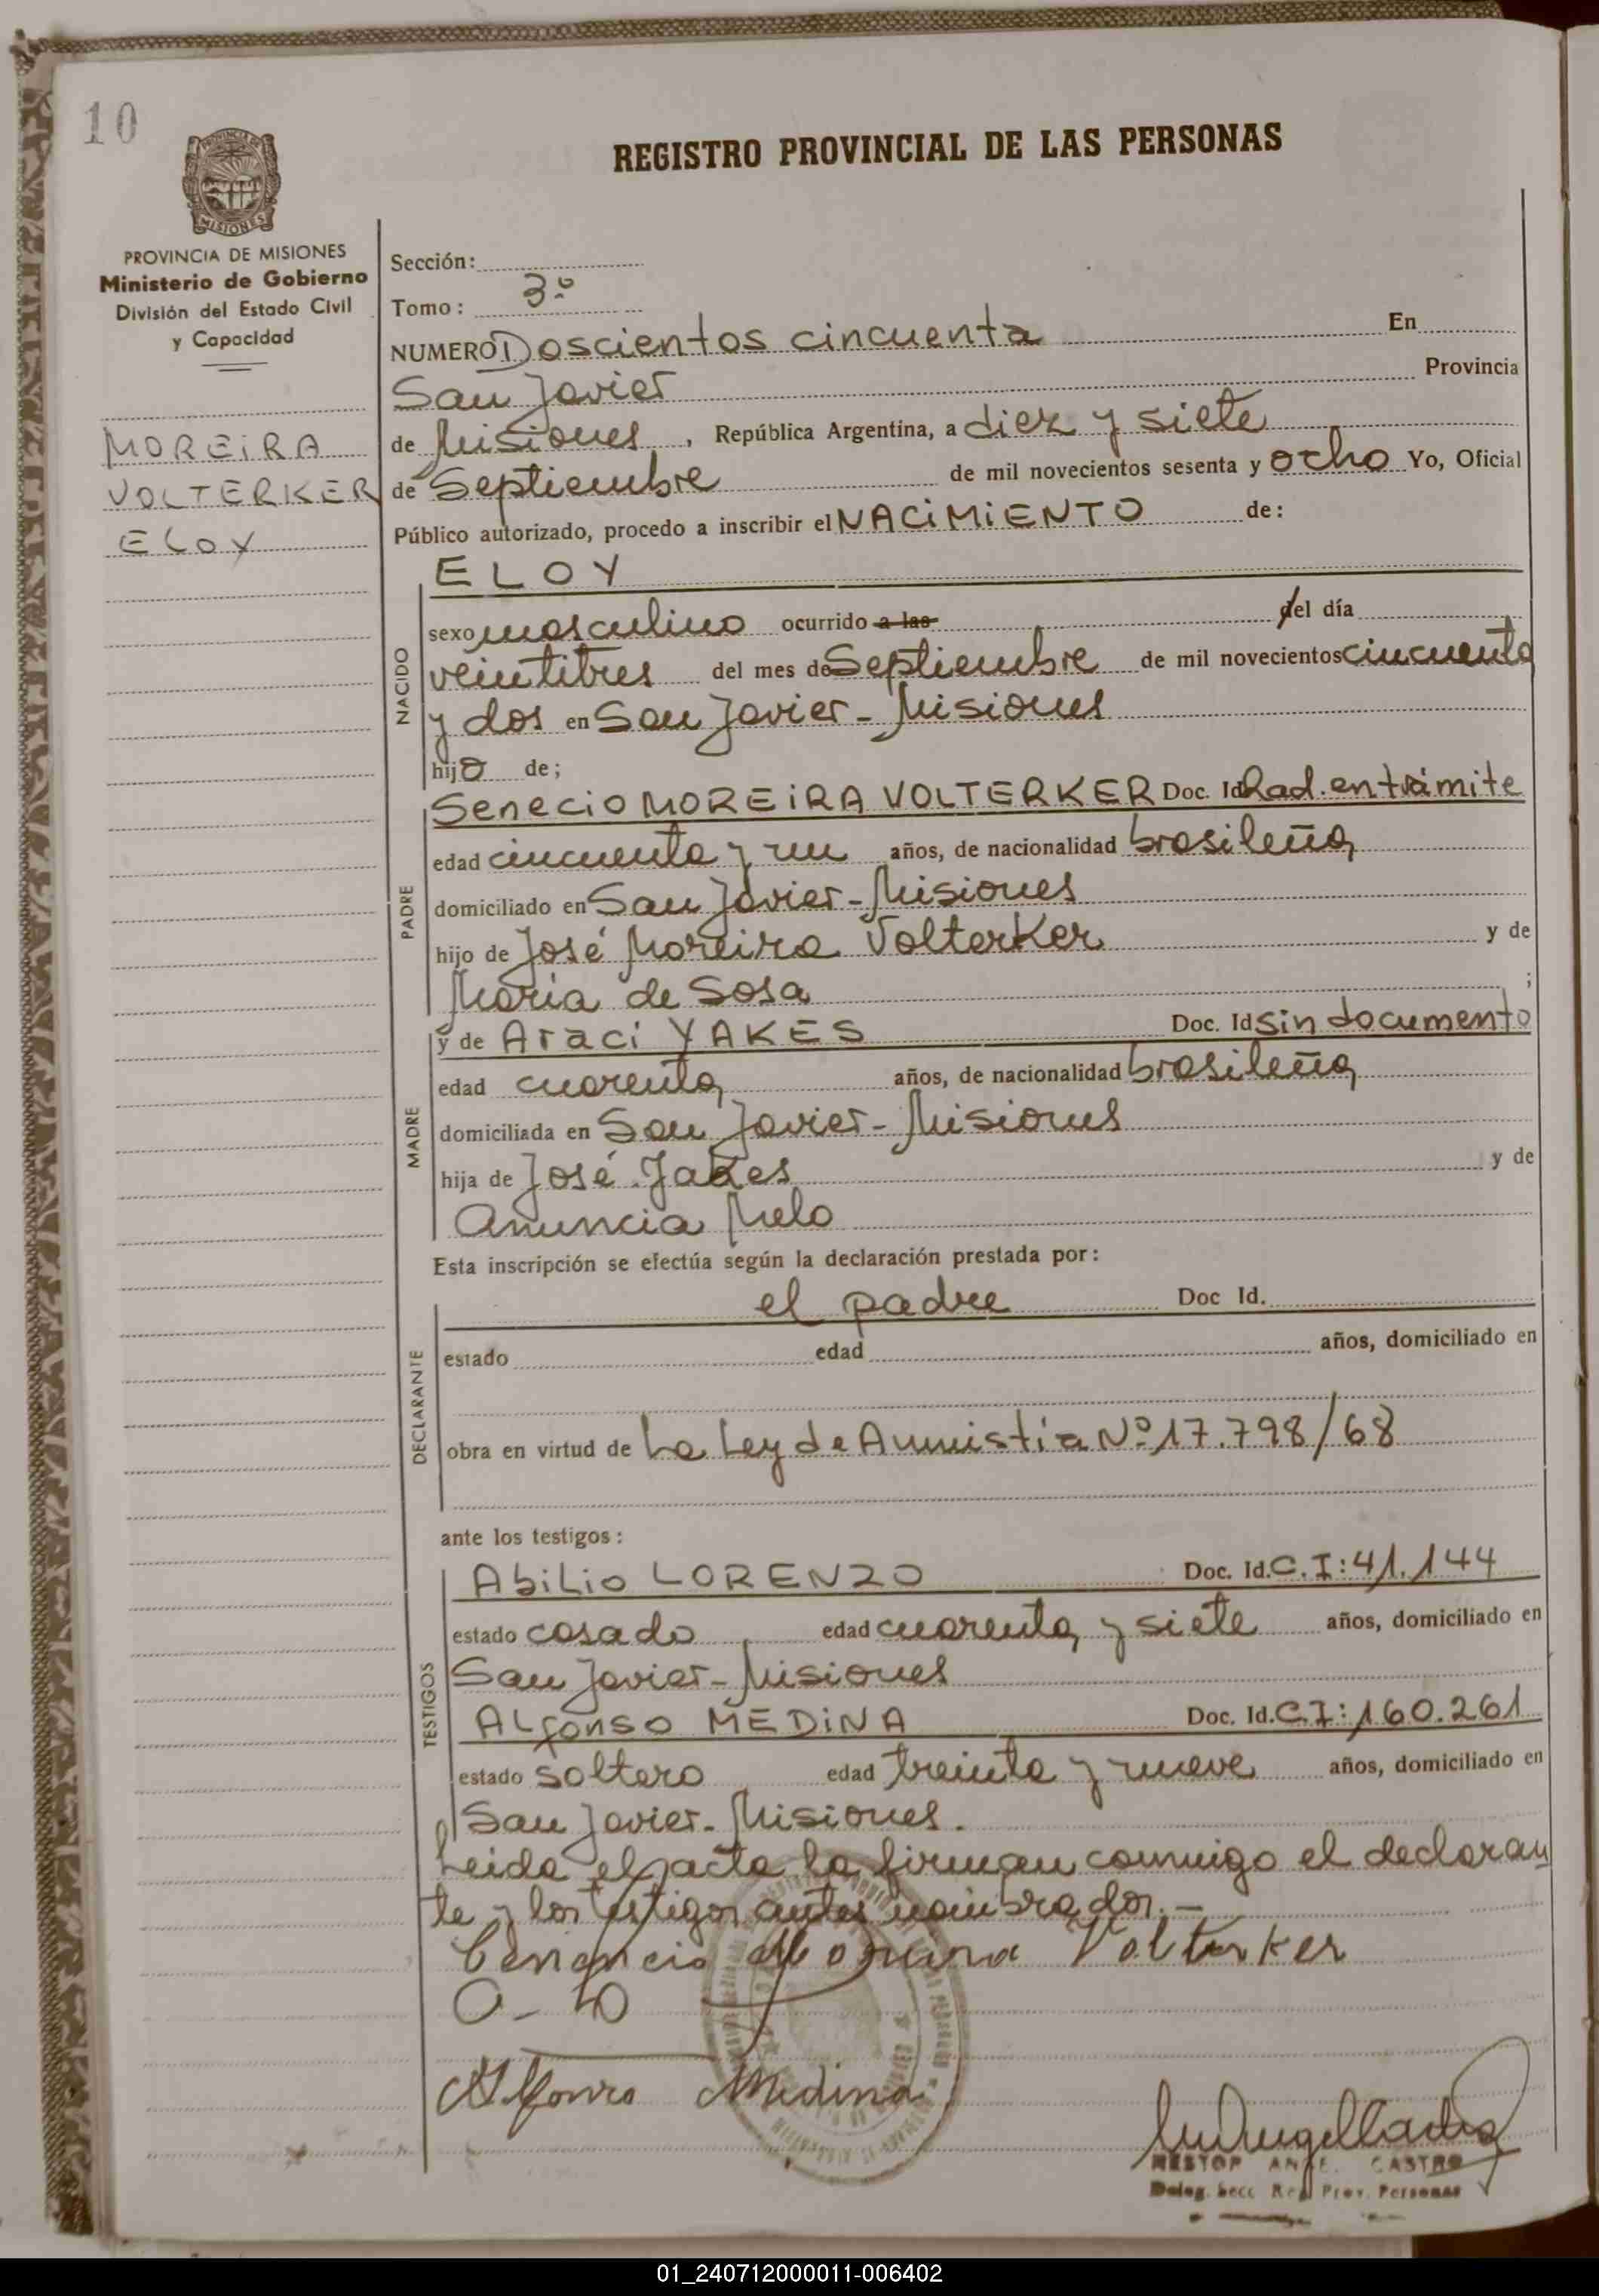 10
MISIONES
PROVINCIA DE MISIONES
Ministerio de Gobierno
División del Estado Civil
y Capacidad
MOREIRA
VOLTERKER
ELOY
REGISTRO PROVINCIAL DE LAS PERSONAS
Sección:
Tomo: 3º
NUMERO Doscientos cincuenta En
San Javier Provincia
de Misiones, República Argentina, a diez y siete
de Septiembre de mil novecientos sesenta y ocho Yo, Oficial
Público autorizado, procedo a inscribir el NACIMIENTO de:
NACIDO
ELOY
sexo masculino ocurrido a las del día
veintitres del mes de Septiembre de mil novecientos cincuenta
y dos en San Javier - Misiones
hijo de;
PADRE
Senecio MOREIRA VOLTERKER Doc. Id Rad. en trámite
edad cincuenta y un años, de nacionalidad brasileña
domiciliado en San Javier - Misiones
hijo de José Moreira Volterker y de
Maria de Sosa ;
MADRE
y de Araci YAKES Doc. Id sin documento
edad cuarenta años, de nacionalidad brasileña
domiciliada en San Javier - Misiones
hija de José Jakes y de
Anuncia Melo
Esta inscripción se efectúa según la declaración prestada por:
DECLARANTE
el padre Doc Id.
estado edad años, domiciliado en
obra en virtud de La Ley de Amnistía Nº 17.798/68
ante los testigos:
TESTIGOS
Abilio LORENZO Doc. Id. C.I: 41.144
estado casado edad cuarenta y siete años, domiciliado en
San Javier - Misiones
Alfonso MEDINA Doc. Id. C.I: 160.261
estado soltero edad treinta y nueve años, domiciliado en
San Javier - Misiones.
Leida el acta la firman conmigo el declaran
te y los testigos antes nombrados. -
Cenencio Moreira Volterker
Alfonso Medina
NESTOR ANGEL CASTRO
Deleg. Secc. Reg. Prov. Personas
01_240712000011-006402